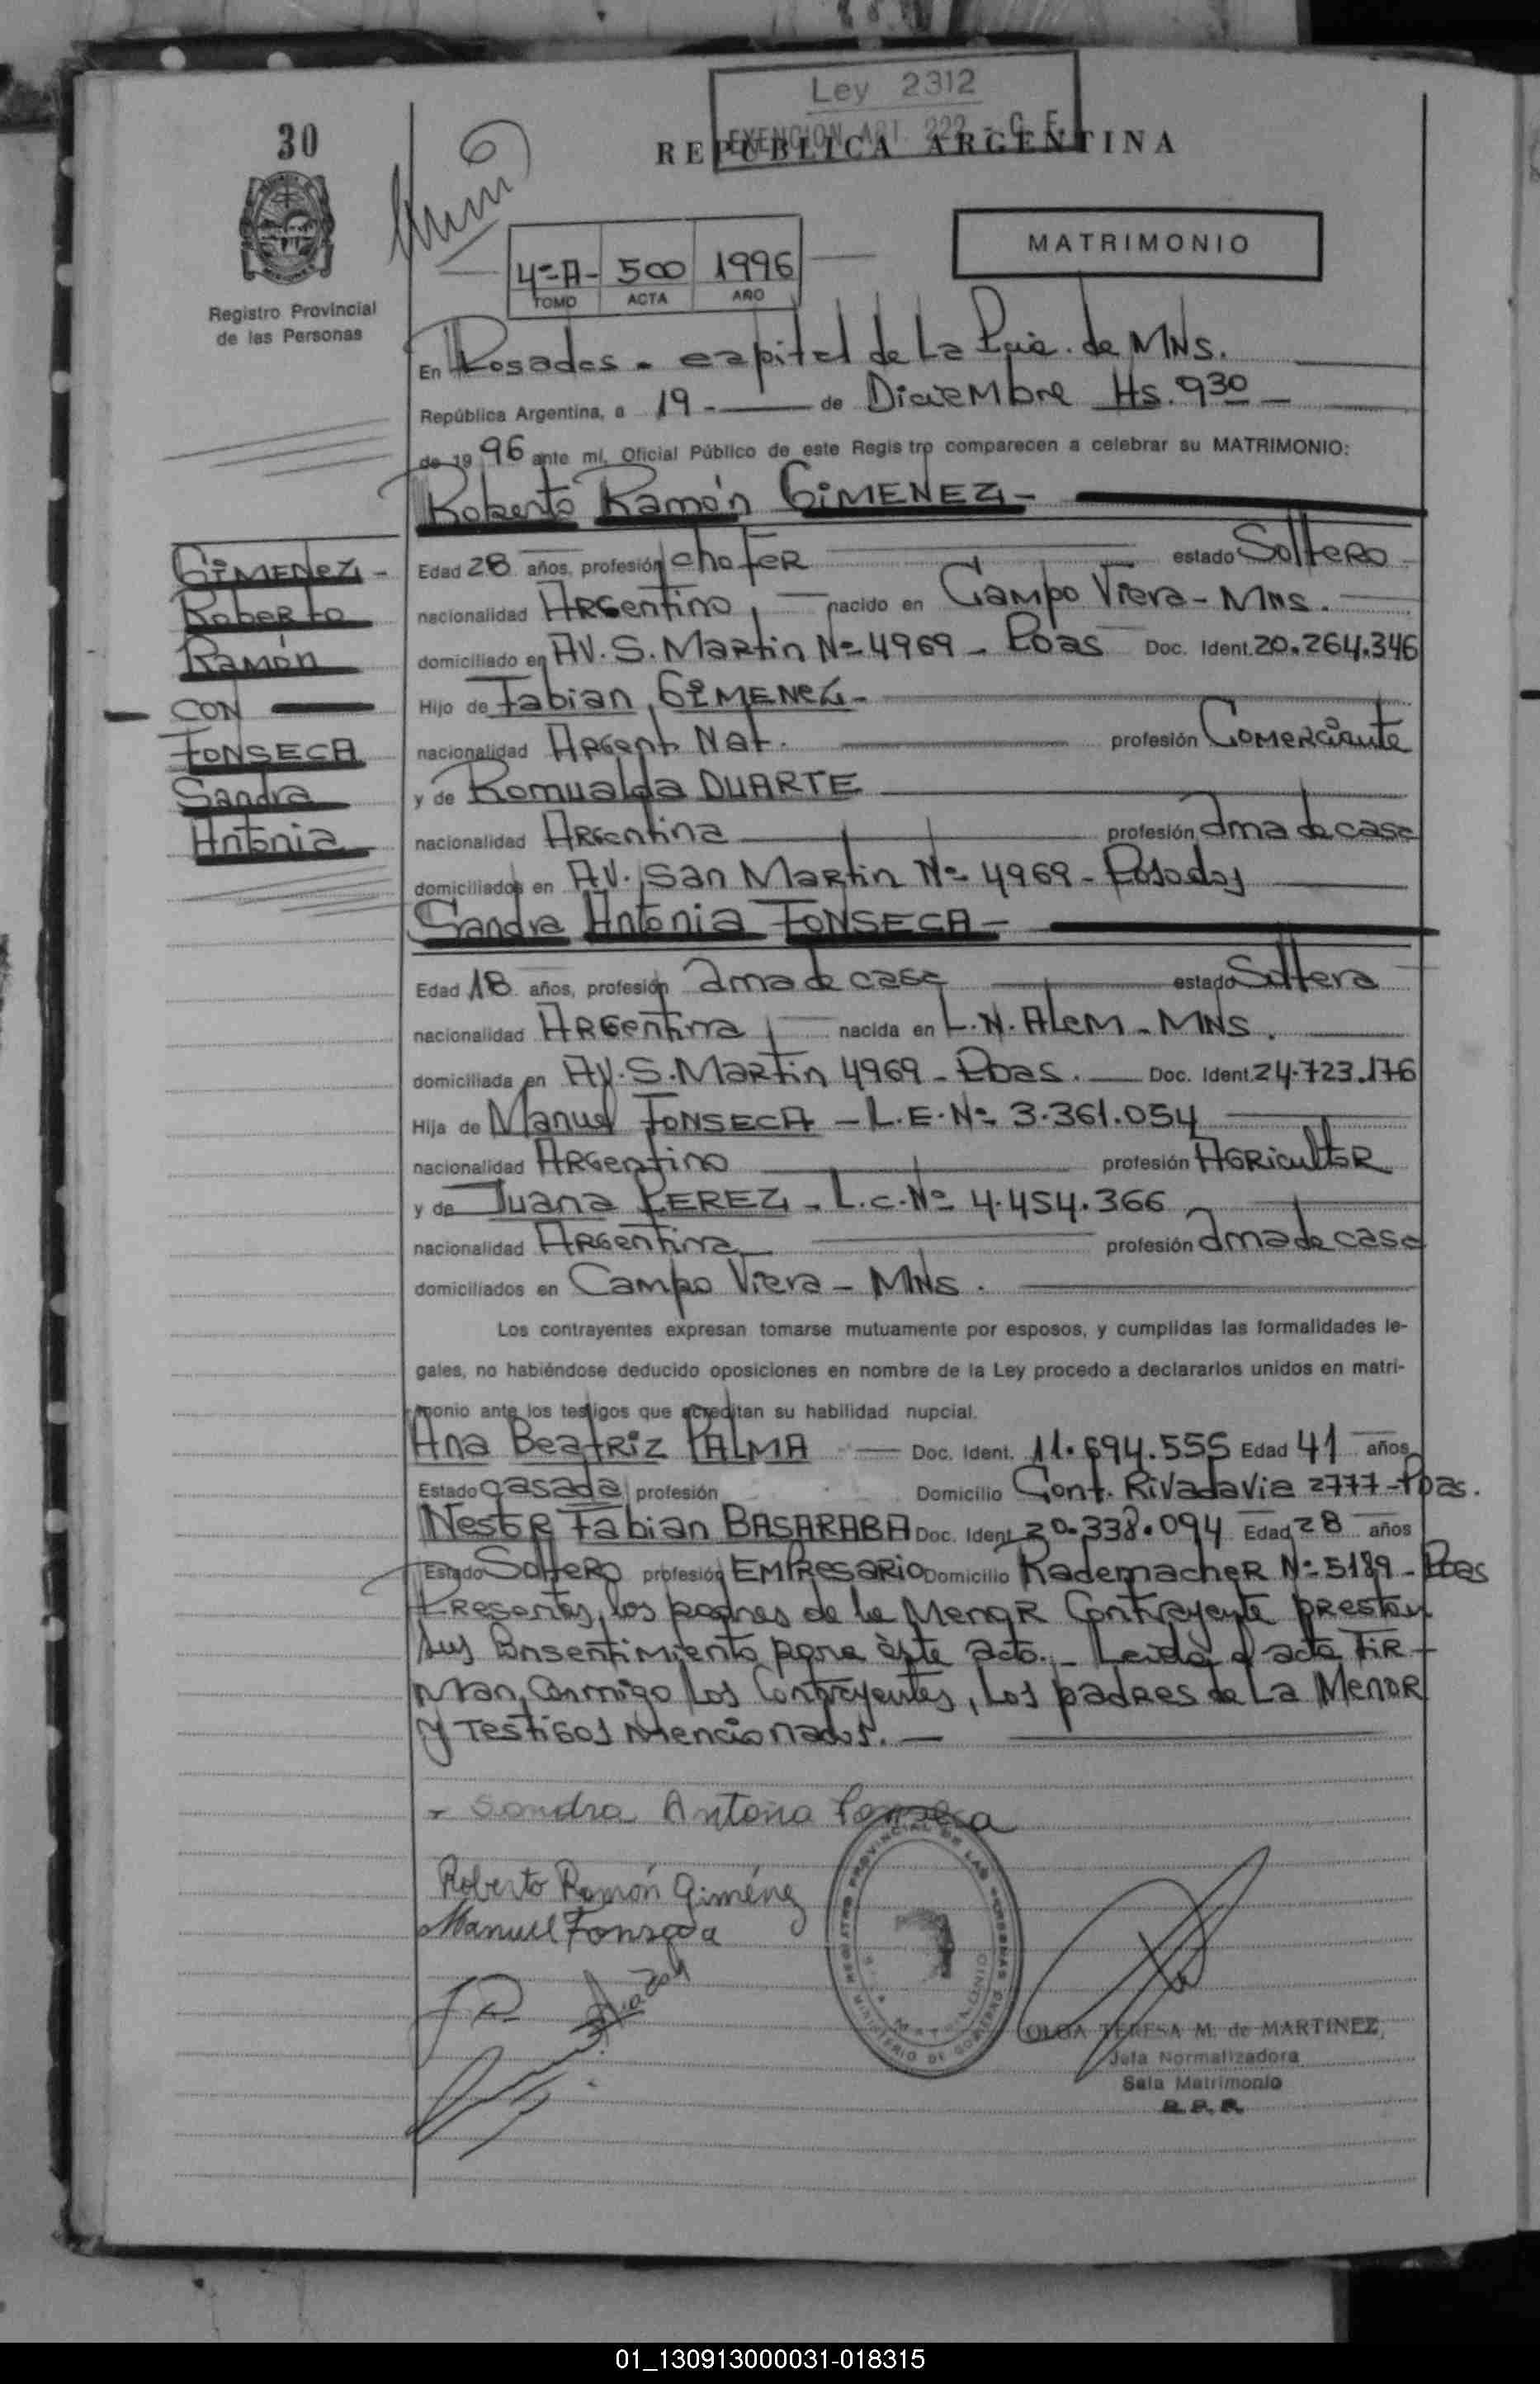 Ley 2312
EXENCION ART. 222 - C. F.
30
REPUBLICA ARGENTINA
MATRIMONIO
4º-A- 500 1996
TOMO ACTA AÑO
Registro Provincial
de las Personas
En Posadas - capital de La Pcia. de MNS.
República Argentina, a 19 - de Diciembre Hs. 930 -
de 19 96 ante mí, Oficial Público de este Registro comparecen a celebrar su MATRIMONIO:
Roberto Ramón GIMENEZ -
GIMENEZ -
Roberto
Ramón
CON
FONSECA
Sandra
Antonia
Edad 28 años, profesión chofer estado Soltero
nacionalidad Argentino, nacido en Campo Viera - MNS.
domiciliado en AV. S. Martin Nº 4969 - Pdas Doc. Ident. 20.264.346
Hijo de Fabian GIMENEZ -
nacionalidad Argent. Nat. profesión Comerciante
y de Romualda DUARTE
nacionalidad Argentina profesión ama de casa
domiciliados en AV. San Martin Nº 4969 - Posadas
Sandra Antonia FONSECA -
Edad 18 años, profesión ama de casa estado Soltera
nacionalidad Argentina, nacida en L.N. ALEM - MNS.
domiciliada en AV. S. Martin 4969 - Pdas. Doc. Ident. 24.723.176
Hija de Manuel FONSECA - L.E. Nº 3.361.054
nacionalidad Argentino profesión Agricultor
y de Juana PEREZ - L.C. Nº 4.454.366
nacionalidad Argentina profesión ama de casa
domiciliados en Campo Viera - MNS.
Los contrayentes expresan tomarse mutuamente por esposos, y cumplidas las formalidades le-
gales, no habiéndose deducido oposiciones en nombre de la Ley procedo a declararlos unidos en matri-
monio ante los testigos que acreditan su habilidad nupcial.
Ana Beatriz PALMA Doc. Ident. 11.694.555 Edad 41 años
Estado casada profesión Domicilio Cont. Rivadavia 2777 - Pdas.
Nestor Fabian BASARABA Doc. Ident. 20.338.094 Edad 28 años
Estado Soltero profesión Empresario Domicilio Rademacher Nº 5189 - Pdas
Presentes, los padres de la Menor Contrayente prestan
sus Consentimiento para este acto. - Leida el acta FIR-
man, Conmigo Los Contrayentes, Los padres de La Menor
y Testigos Mencionados. -
Sandra Antonia Fonseca
Roberto Ramón Giménez
Manuel Fonseca
REGISTRO PROVINCIAL DE LAS PERSONAS
MINISTERIO DE GOBIERNO
OLGA TERESA M. de MARTINEZ
Jefa Normalizadora
Sala Matrimonio
R.P.P.
01_130913000031-018315